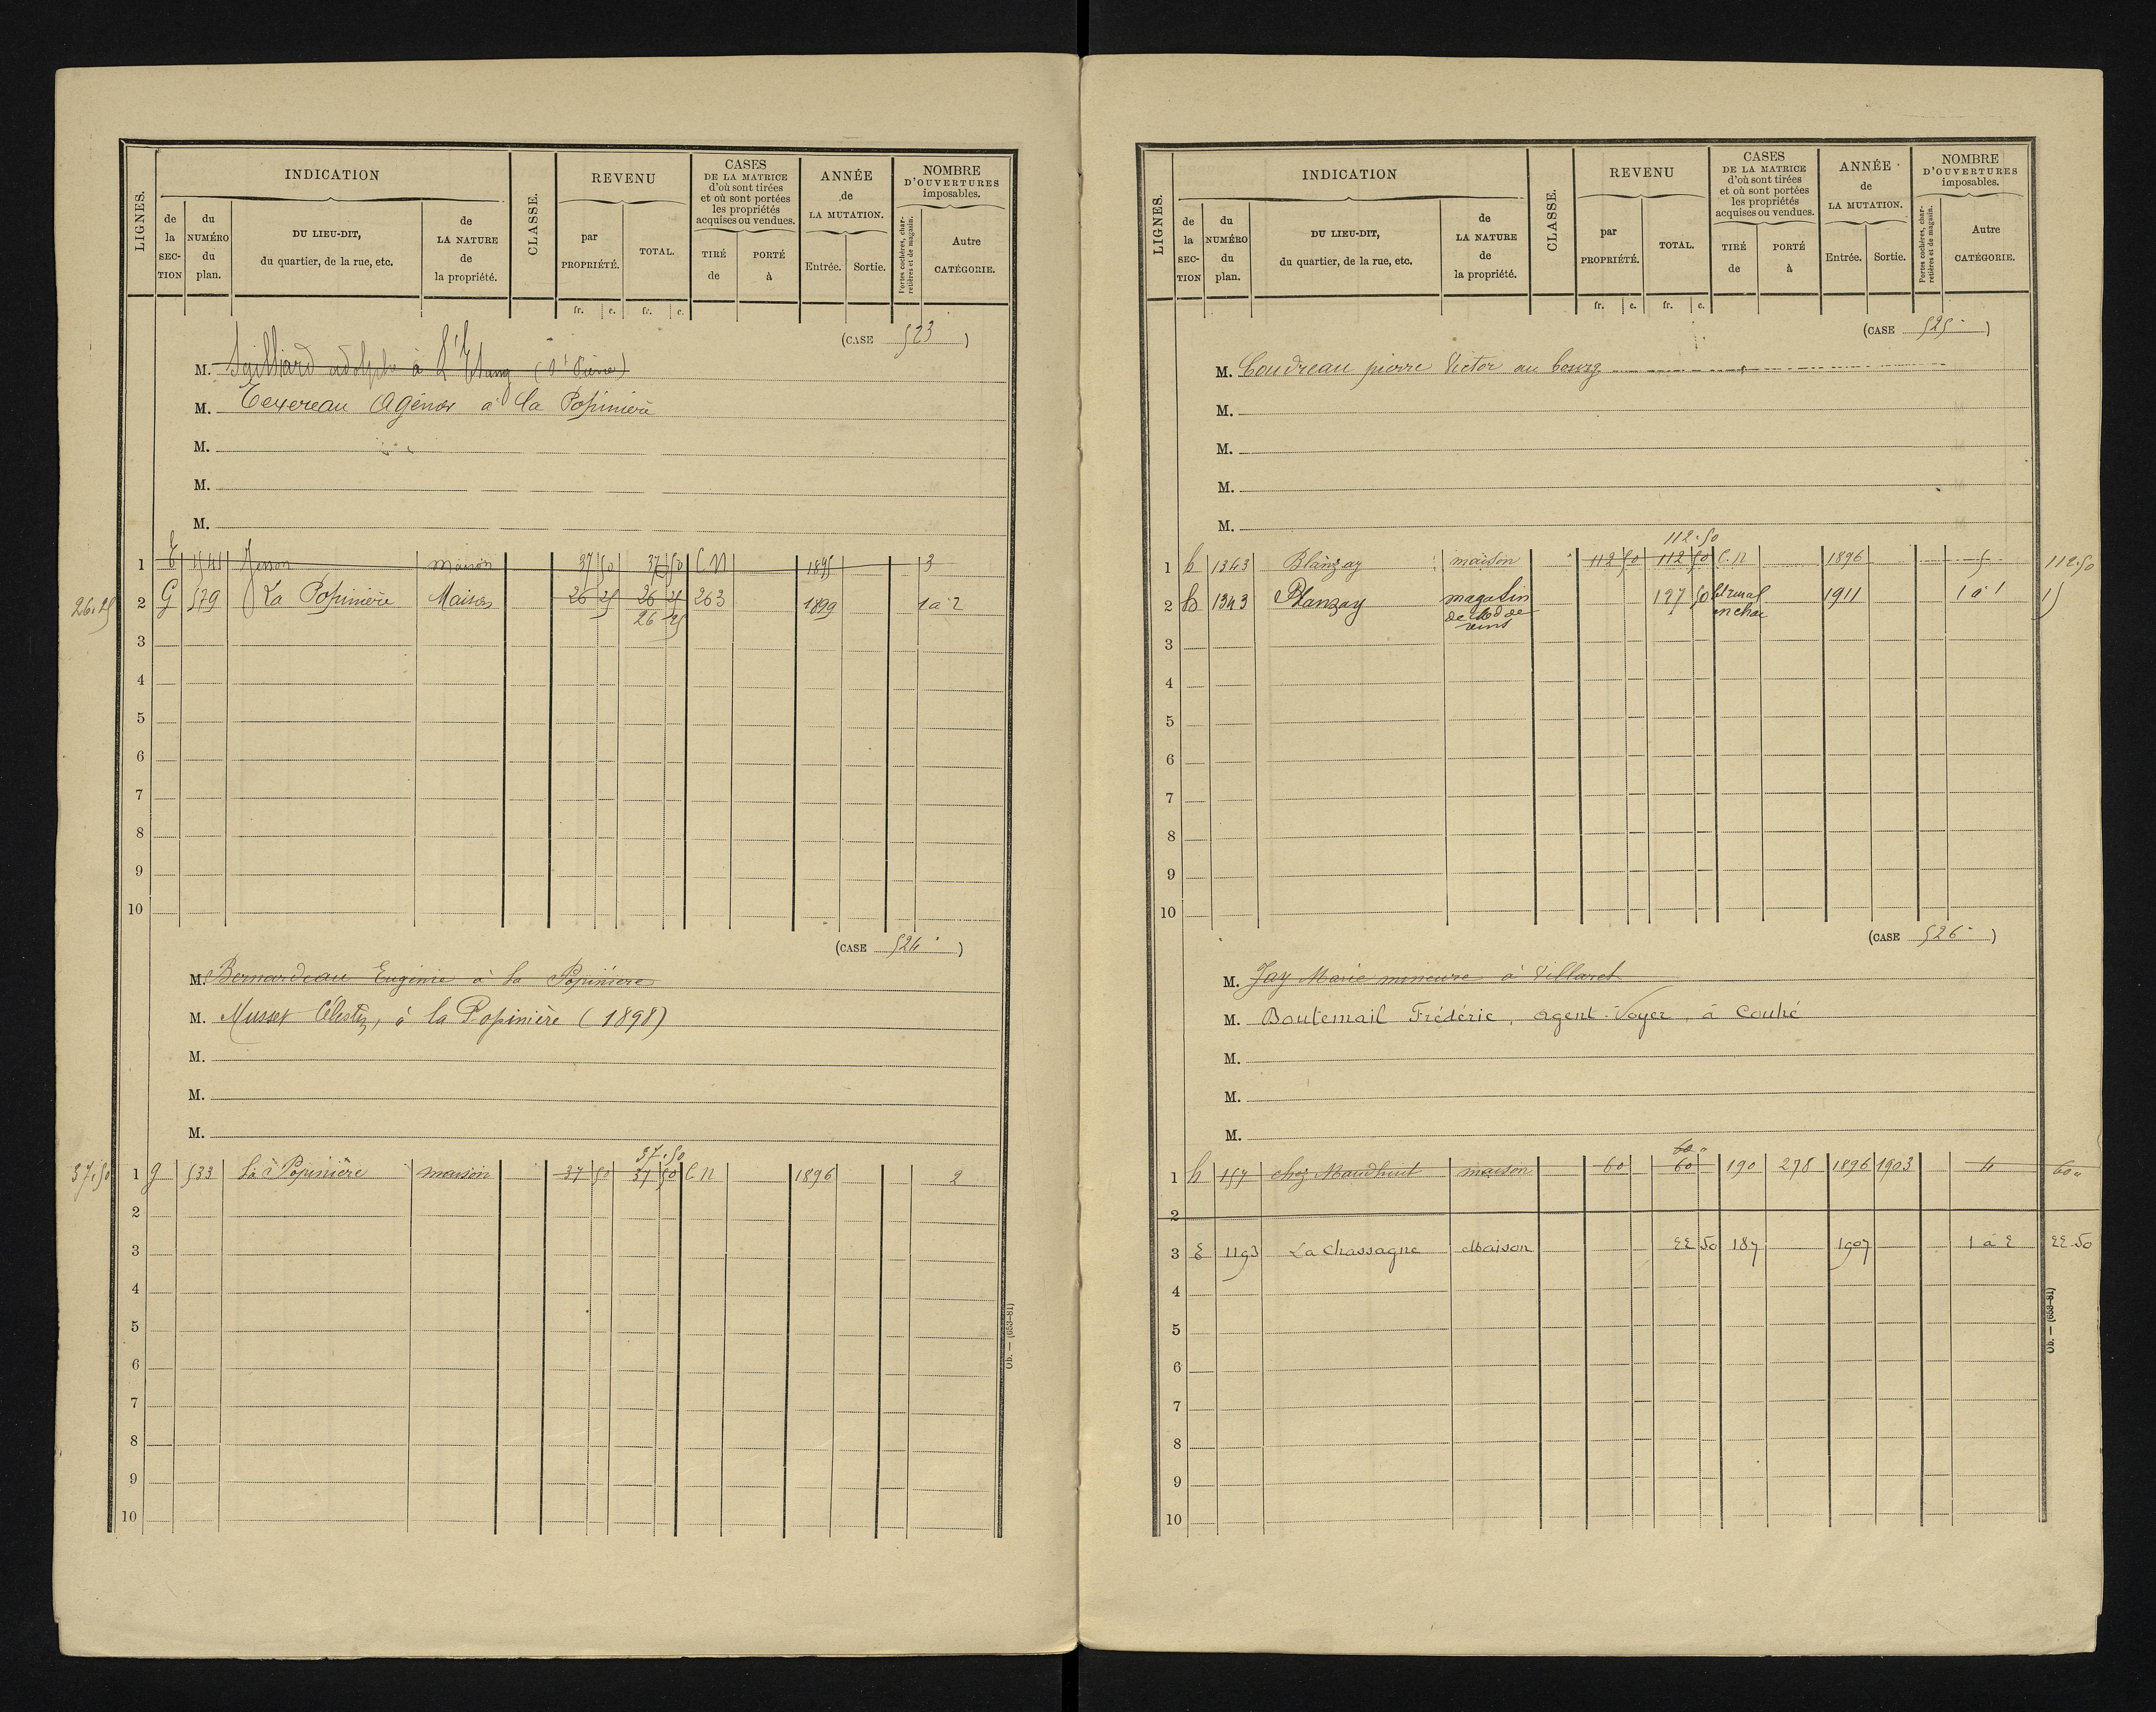 LIGNES. INDICATION CLASSE. REVENU CASES DE LA MATRICE d'où sont tirées et où sont portées les propriétés acquises ou vendues. ANNÉE de LA MUTATION. NOMBRE D'OUVERTURES imposables.
de la SECTION du NUMÉRO du plan. DU LIEU-DIT, du quartier, de la rue, etc. de LA NATURE de la propriété. par PROPRIÉTÉ. TOTAL. TIRÉ de PORTÉ à Entrée. Sortie. Portes cochères, charretières et de magasin. Autre CATÉGORIE.
fr. c. fr. c.
(CASE 523)
M. adolphe à L'Etang (St Pierre)
M. Texereau Agénor à la Popinière
M.
M.
M.
1 E 1541 maison 37 50 37 50 C.N 1895 3
26.25 2 G 579 La Popinière Maison 26 25 26 25 263 1899 1 à 2
26 25
3
4
5
6
7
8
9
10
(CASE 524)
M. Bernardeau Euginie à la Popinière
M. Musset Célestin, à la Popinière (1898)
M.
M.
M.
37.50
37.50 1 g 533 la Popinière maison 37 50 37 50 C.N 1896 2
2
3
4
5
6
7
8
9
10
Ob. — (653-81)
LIGNES. INDICATION CLASSE. REVENU CASES DE LA MATRICE d'où sont tirées et où sont portées les propriétés acquises ou vendues. ANNÉE de LA MUTATION. NOMBRE D'OUVERTURES imposables.
de la SECTION du NUMÉRO du plan. DU LIEU-DIT, du quartier, de la rue, etc. de LA NATURE de la propriété. par PROPRIÉTÉ. TOTAL. TIRÉ de PORTÉ à Entrée. Sortie. Portes cochères, charretières et de magasin. Autre CATÉGORIE.
fr. c. fr. c.
(CASE 525)
M. Coudreau pierre Victor au bourg
M.
M.
M.
M.
112.50
1 h 1343 Blanzay maison 112 50 112 50 C.N 1896 5 112.50
2 1343 Blanzay magasin 50 1911 1 à 1
de
vins
3
4
5
6
7
8
9
10
(CASE 526)
M. Jay Marie mineure à Villaret
M. Boutemail Frédéric, agent-Voyer, à Couhé
M.
M.
M.
60
1 h 157 chez Maudhuit maison 60 60 190 278 1896 1903 4 60
2
3 E 1193 La Chassagne Maison 22 50 187 1907 1 à 2 22.50
4
5
6
7
8
9
10
Ob. — (653-81)